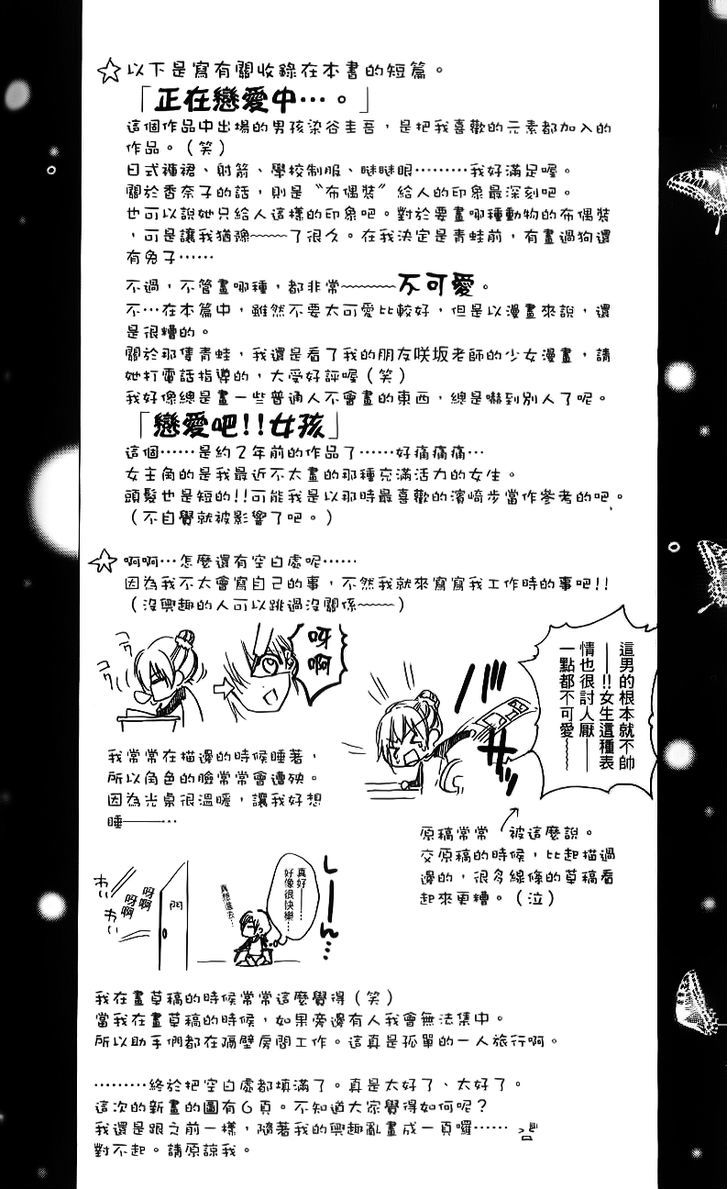 ☆以下是寫有關收錄在本書的短篇。
「正在戀愛中…。」
這個作品中出場的男孩染谷圭吾，是把我喜歡的元素都加入的
作品。（笑）
日式褲裙、射箭、學校制服、瞇瞇眼………我好滿足喔。
關於香奈子的話，則是〝布偶裝〞給人的印象最深刻吧。
也可以說她只給人這樣的印象吧。對於要畫哪種動物的布偶裝
，可是讓我猶豫~~~~了很久。在我決定是青蛙前，有畫過狗還
有兔子……
不過，不管畫哪種，都非常~~~~~~不可愛。
不…在本篇中，雖然不要太可愛比較好，但是以漫畫來說，還
是很糟的。
關於那隻青蛙，我還是看了我的朋友咲坂老師的少女漫畫，請
她打電話指導的，大受好評喔（笑）
我好像總是畫一些普通人不會畫的東西，總是嚇到別人了呢。
「戀愛吧!!女孩」
這個……是約2年前的作品了……好痛痛痛…
女主角的是我最近不太畫的那種充滿活力的女生。
頭髮也是短的!!可能我是以那時最喜歡的濱崎步當作參考的吧。
（不自覺就被影響了吧。）
☆啊啊…怎麼還有空白處呢……
因為我不太會寫自己的事，不然我就來寫寫我工作時的事吧!!
（沒興趣的人可以跳過沒關係~~~~）
呀啊
這男的根本就不帥
——!!女生這種表
情也很討人厭——
一點都不可愛~~~~
ガサッ
我常常在描邊的時候睡著，
所以角色的臉常常會遭殃。
因為光桌很溫暖，讓我好想
睡———…
原稿常常 被這麼說。
交原稿的時候，比起描過
邊的，很多線條的草稿看
起來更糟。（泣）
わい
わーい
呀啊
呀啊
門
真想進去…
真好——
好像很快樂…
しーん…
我在畫草稿的時候常常這麼覺得（笑）
當我在畫草稿的時候，如果旁邊有人我會無法集中。
所以助手們都在隔壁房間工作。這真是孤單的一人旅行啊。
………終於把空白處都填滿了。真是太好了、太好了。
這次的新畫的圖有6頁。不知道大家覺得如何呢？
我還是跟之前一樣，隨著我的興趣亂畫成一頁囉……
對不起。請原諒我。